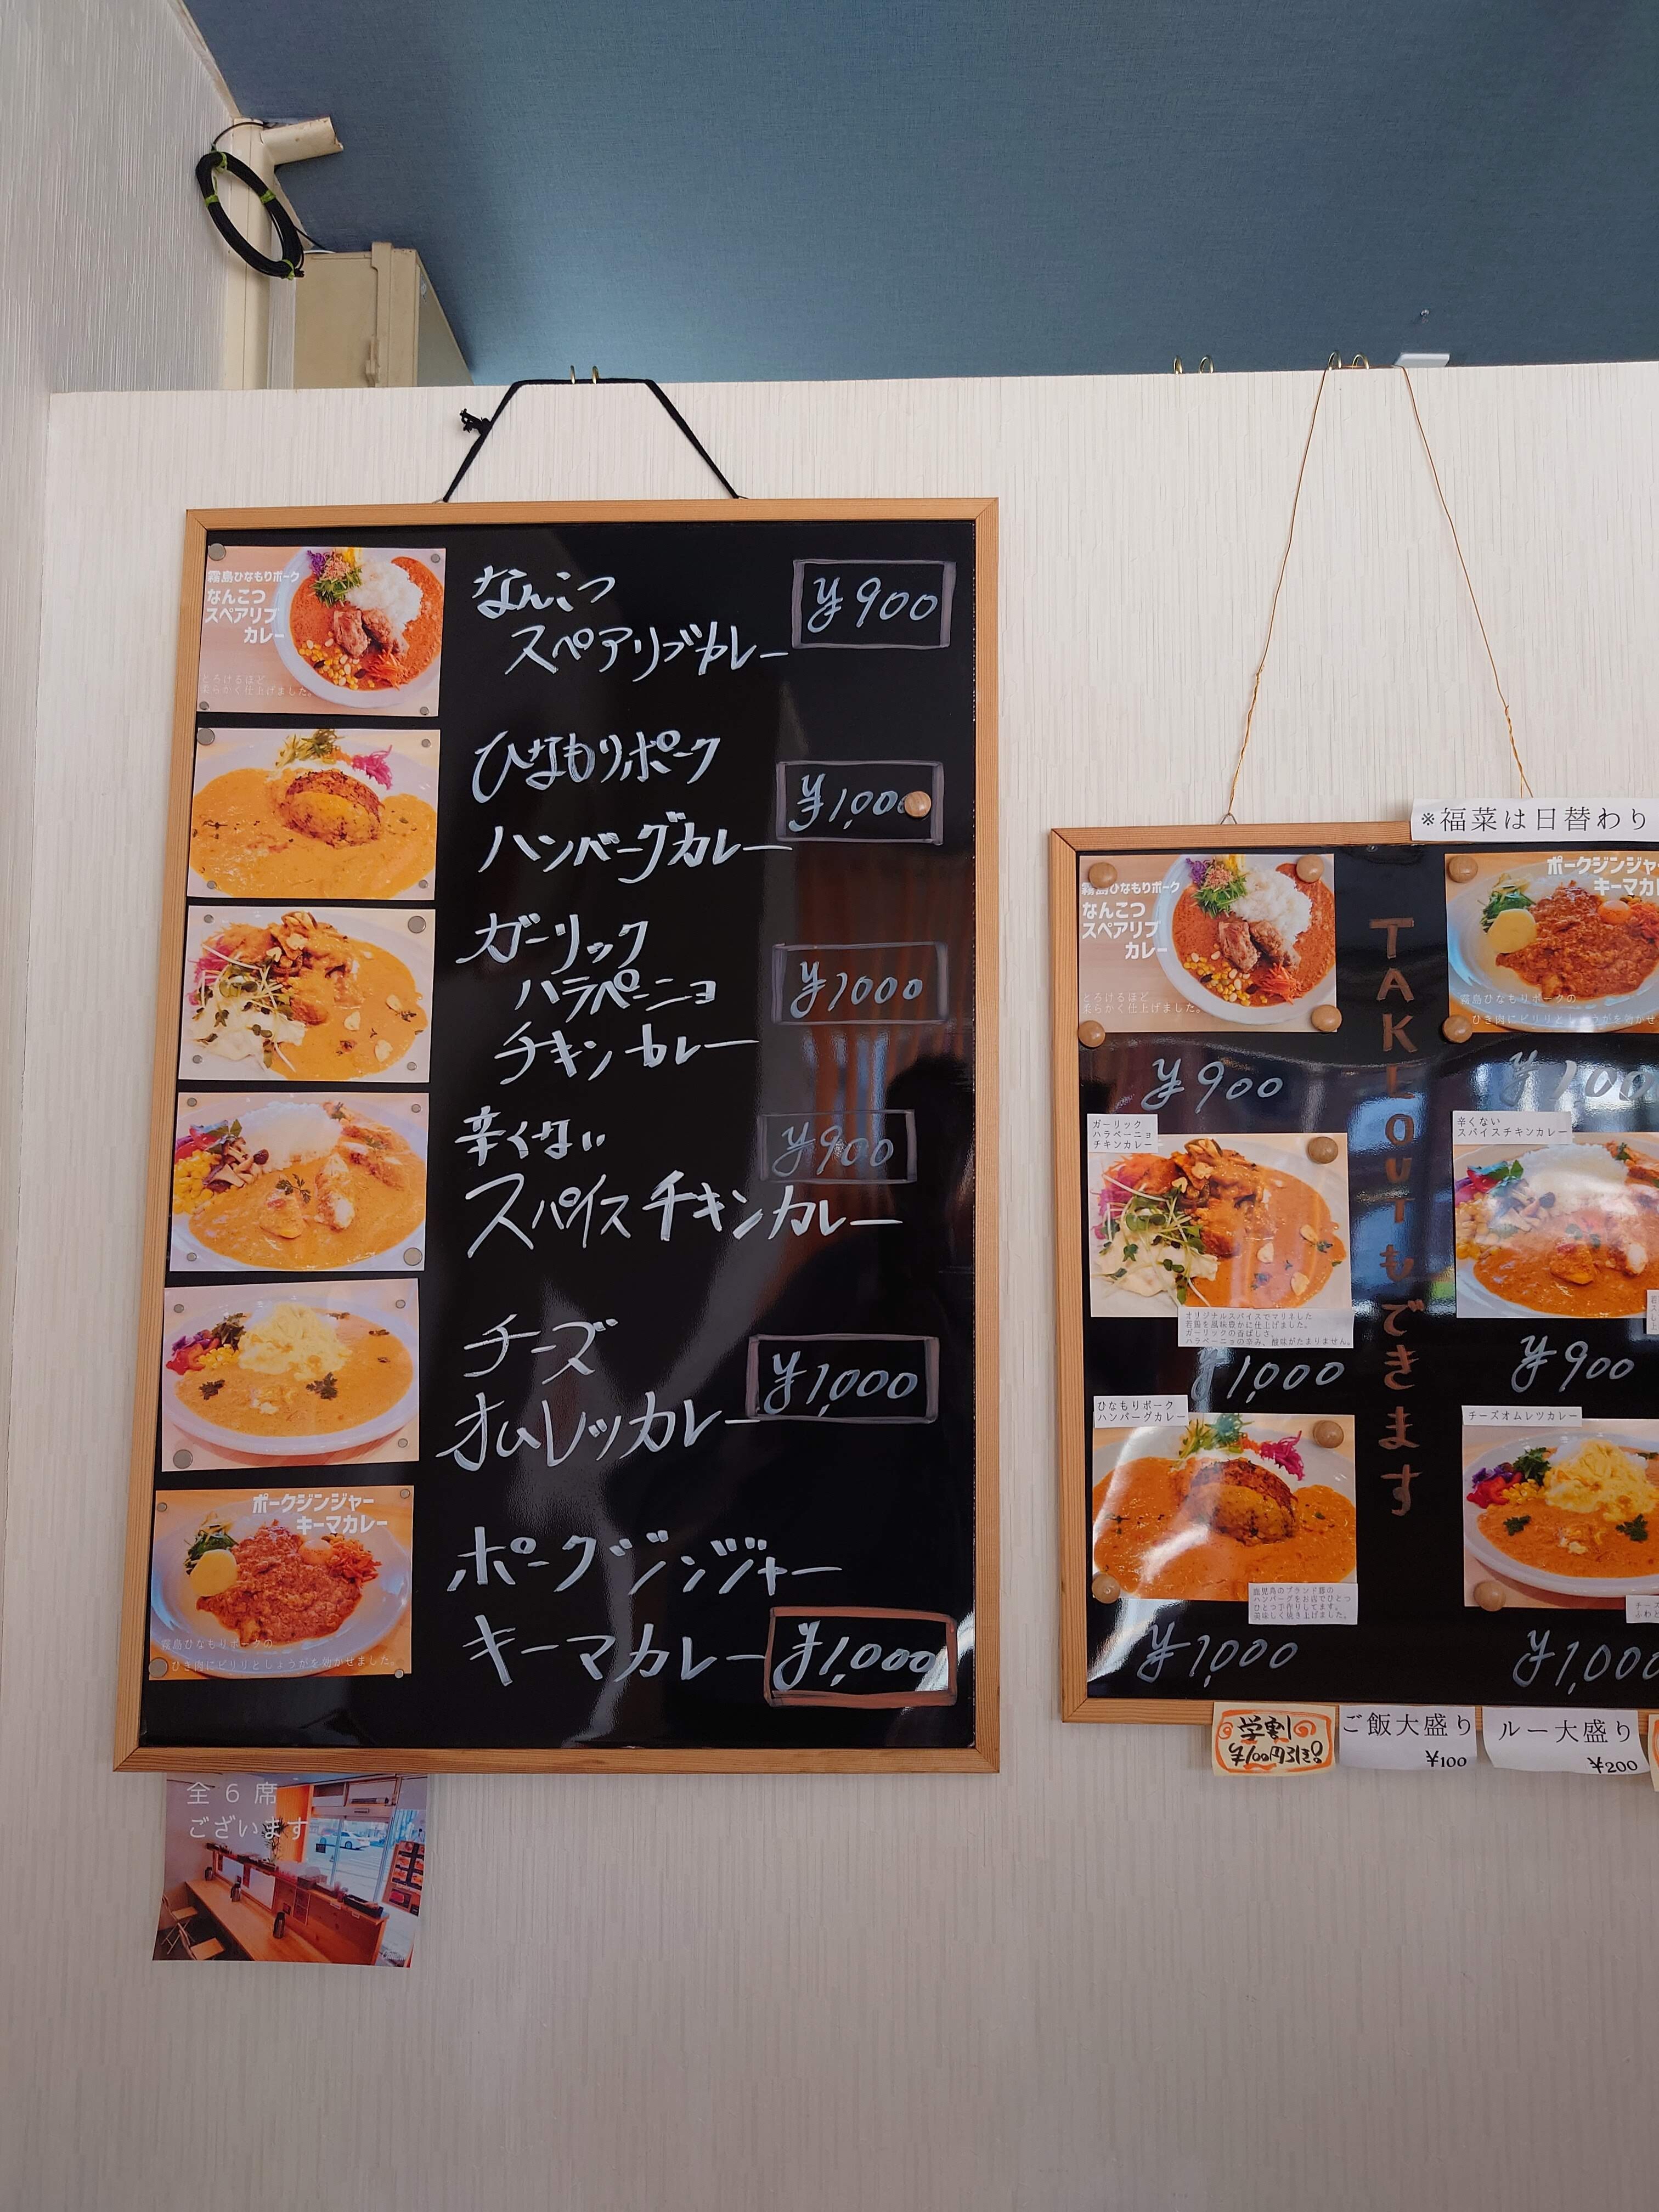 霧島ひなもりポーク
なんこつ
スペアリブ
カレー
とろけるほど
柔らかく仕上げました。
なんこつ
スペアリブカレー
¥900
ひなもりポーク
ハンバーグカレー
ガーリック
ハラペーニョ
チキンカレー
¥1000
辛くない
スパイスチキンカレー
¥900
チーズ
オムレツカレー
¥1,000
ポークジンジャー
キーマカレー
霧島ひなもりポークの
ひき肉にピリリとしょうがを効かせました。
ポークジンジャー
キーマカレー
¥1,000
全6席
ございます
※福菜は日替わり
霧島ひなもりポーク
なんこつ
スペアリブ
カレー
とろけるほど
柔らかく仕上げました。
¥900
霧島ひなもりポークの
TAKEOUTもできます
ガーリック
ハラペーニョ
チキンカレー
オリジナルスパイスでマリネした
若鶏を風味豊かに仕上げました。
ガーリックの香ばしさ、
ハラペーニョの辛み、酸味がたまりません。
¥1,000
辛くない
スパイスチキンカレー
¥900
ひなもりポーク
ハンバーグカレー
鹿児島のブランド豚の
ハンバーグをお店でひとつ
ひとつ手作りしてます。
美味しく焼き上げました。
¥1,000
チーズオムレツカレー
¥1,000
学割
¥100円引き
ご飯大盛り
¥100
ルー大盛り
¥200